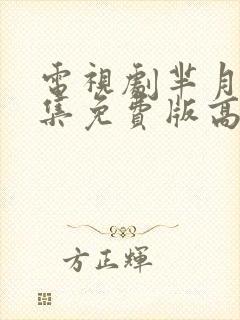 電視劇芈月
集免費版高
方正輝